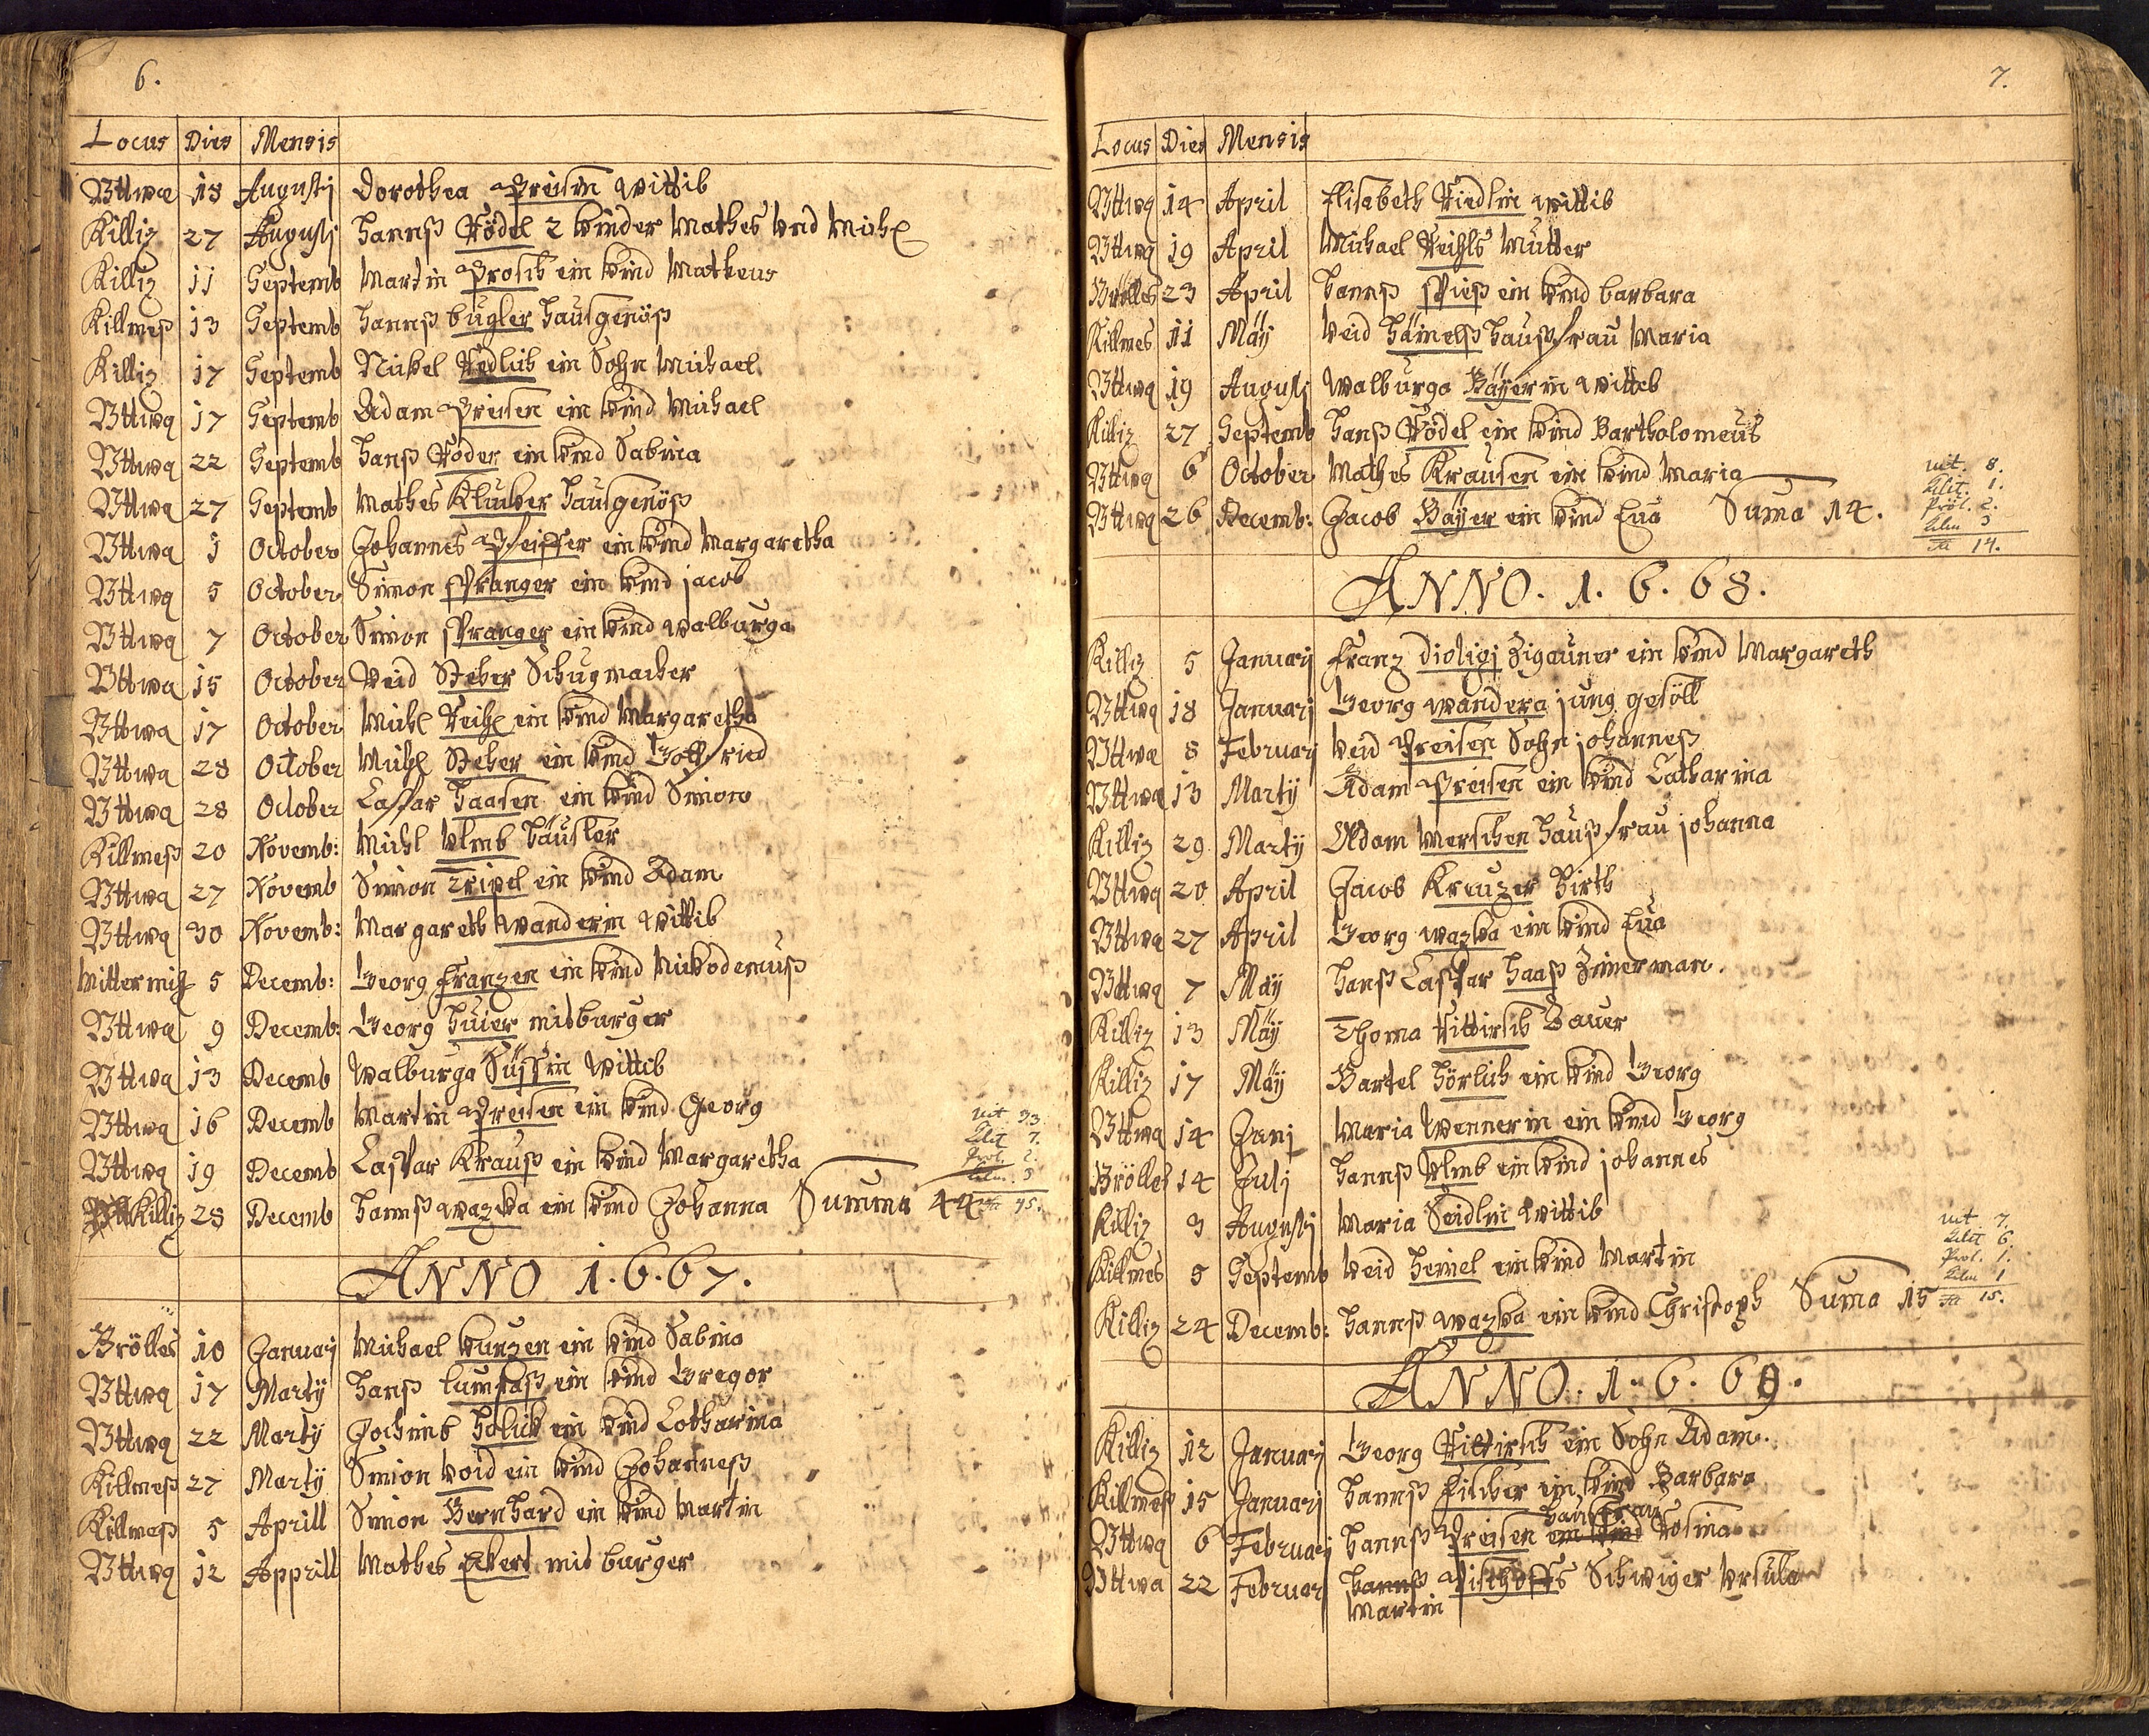 6.
Locus Dies Mensis
Vttwa 18 Augustj Dorothea Preisin Wittib
Killiz 27 Augustj Hannß Rödel 2 Kinder Mathes Vnd Michl
Killiz 11 Septemb Martin Prosch ein Kind Matheus
Killmeß 13 Septemb Hannß bugler Hausgenöß
Killiz 17 Septemb Nickel Redlich ein Sohn Michael
Vttwa 17 Septemb Adam Preisen ein Kind Michael
Vttwa 22 Septemb Hanß Röder ein Kind Sabina
Vttwa 27 Septemb Mathes Klucker Hausgenöß
Vttwa 3 October Johannes Pfeiffer ein Kind Margaretha
Vttwa 5 October Simon Spranger ein Kind jacob
Vttwa 7 October Simon Spranger ein Kind Walburga
Vttwa 15 October Veid Steher Schugmacher
Vttwa 17 October Michl Reichl ein Kind Margaretha
Vttwa 28 October Michl Steher ein Kind Gottfried
Vttwa 28 October Caspar Haasen ein Kind Simon
Killmeß 20 Novemb: Michl Vlmb Häusler
Vttwa 27 Novemb Simon Tripel ein Kind Adam
Vttwa 30 Novemb: Margareth Wanderin Wittib
Wittermiz 5 Decemb: Georg Franzen ein Kind Nickodemuß
Vttwa 9 Decemb: Georg Huier mitburger
Vttwa 13 Decemb Walburga Süssin Wittib
Vttwa 16 Decemb Martin Preisen ein Kind Georg
Vttwa 19 Decemb Caspar Krauß ein Kind Margaretha
Killiz 28 Decemb Hannß Wazka ein Kind Johanna Summa 44
utt 33
Kilit 7.
Prol. 2.
Kilm. 3
45.
ANNO 1.6.67.
Brölles 10 Januarj Michael Kunzen ein Kind Sabina
Vttwa 17 Martÿ Hanß Lumpaß ein Kind Gregor
Vttwa 22 Martÿ Jochimb Holick ein Kind Catharina
Killmeß 27 Martÿ Simon Void ein Kind Johanneß
Killmeß 5 Aprill Simon Bernhard ein Kind Martin
Vttwa 12 Apprill Mathes Ekert mit burger
7.
Locus Dies Mensis
Vttwa 14 April Elisabeth Riedlin Wittib
Vttwa 19 April Michael Reichls Mutter
Brölles 23 April Hannß Spieß ein Kind barbara
Killmes 11 Maÿ Veid Haimelß Haußfrau Maria
Vttwa 19 Augustj Walburga Baÿerin Witteb
Killiz 27 Septemb Hanß Rödel ein Kind Bartholomeus
Vttwa 6 October Mathes Krausen ein Kind Maria
Vttwa 26 Decemb: Jacob Baÿer ein Kind Eua Suma 14.
utt. 8.
Kilit. 1.
Pröl. 2.
Kilm 3
14.
ANNO. 1. 6. 68.
Killiz 5 Januarj Franz dioligj Zigauner ein Kind Margareth
Vttwa 18 Januarj Georg Wandera jung gesöll
Vttwa 8 Februarj Veid Preisen Sohn johanneß
Vttwa 13 Martÿ Adam Preisen ein Kind Catharina
Killiz 29 Martÿ Adam Werschen Haußfrau johanna
Vttwa 20 April Jacob Kreuzer Hirth
Vttwa 27 April Georg Wazka ein Kind Eua
Vttwa 7 Maÿ Hanß Caspar Haaß Zimerman.
Killiz 13 Maÿ Thoma Rittirsch Bauer
Killiz 17 Maÿ Bartel Hörlich ein Kind Georg
Vttwa 14 Junj Maria Wennerin ein Kind Georg
Brölles 14 Julj Hannß Vlmb ein Kind johannes
Killiz 3 Augustj Maria Seidlin Wittib
Killmes 5 Septemb Veid Heinel ein Kind Martin
Killiz 24 Decemb: Hannß Wazka ein Kind Christoph Suma 15
utt. 7.
Kilit 6.
Prol. 1.
Kilm 1
15.
ANNO. 1. 6. 69.
Killiz 12 Januarj Georg Rittirsch ein Sohn Adam.
Killmeß 15 Januarj Hannß Fischer ein Kind Barbara
Hausfrau
Vttwa 6 Februarj Hannß Preisen ein Kind Rosina
Vttwa 22 Februarj Hannß Pischoffs Schwiger Vrsula
Martin